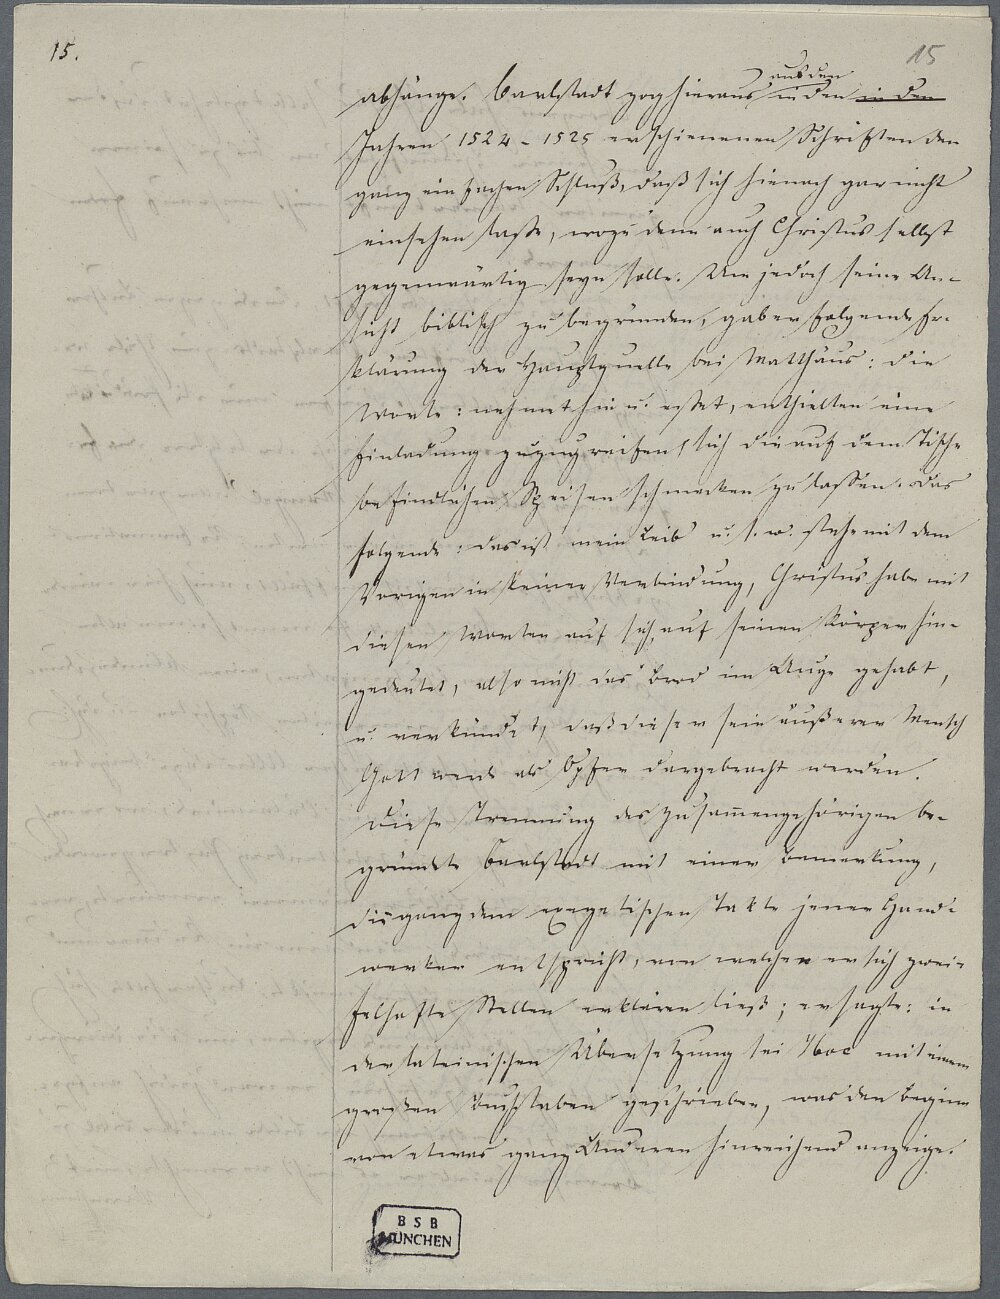 15.
15
aus den
abhänge. Carlstadt zog hieraus in den in den
Jahren 1524-1525 erschienenen Schriften den
ganz einfachen Schluß, daß sich hienach gar nicht
einsehen laße, wozu denn auch Christus selbst
gegenwärtig seyn solle. Um jedoch seine An-
sicht biblisch zu begründen, gab er folgende Er-
klärung der Hauptquelle bei Matthäus: die
Worte: nehmet hin u. esset, enthielten eine
Einladung zuzugreifen, sich die auf dem Tische
befindlichen Speisen schmecken zu lassen. Das
folgende: das ist mein Leib u. s. w. stehe mit dem
Vorigen in keiner Verbindung, Christus habe mit
diesen Worten auf sich, auf seinen Körper hin-
gedeutet, also nicht das Brod im Auge gehabt,
u. verkündet, daß dieser sein äußerer Mensch
Gott werde als Opfer dargebracht werden.
Diese Trennung des Zusam̄engehörigen be-
gründete Carlstadt mit einer Bemerkung,
die ganz dem exegetischen Takte jener Hand-
werker entspricht, von welchen er sich zwei-
felhafte Stellen erklären ließ; er sagte: in
der lateinischen Übersetzung sei Hoc mit einem
großen Buchstaben geschrieben, was den Beginn
von etwas ganz Anderen hinreichend anzeige.
BSB
MÜNCHEN